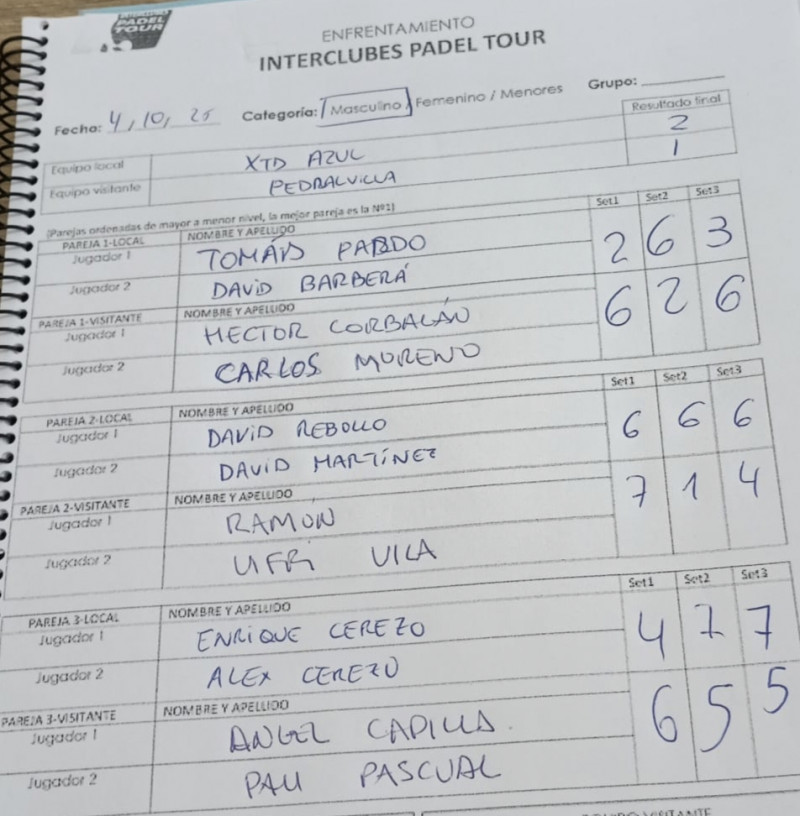 PADEL
TOUR
ENFRENTAMIENTO
INTERCLUBES PADEL TOUR
Fecha: 4, 10, 25 Categoría: Masculino / Femenino / Menores Grupo:
Resultado final
Equipo local XTD AZUL 2
Equipo visitante PEDRALVILLA 1
(Parejas ordenadas de mayor a menor nivel, la mejor pareja es la Nº1)
PAREJA 1-LOCAL NOMBRE Y APELLIDO Set1 Set2 Set3
Jugador 1 TOMÁS PARDO 2 6 3
Jugador 2 DAVID BARBERÁ
PAREJA 1-VISITANTE NOMBRE Y APELLIDO 6 2 6
Jugador 1 HECTOR CORBALÁN
Jugador 2 CARLOS MORENO
PAREJA 2-LOCAL NOMBRE Y APELLIDO Set1 Set2 Set3
Jugador 1 DAVID REBOLLO 6 6 6
Jugador 2 DAVID MARTÍNEZ
PAREJA 2-VISITANTE NOMBRE Y APELLIDO 7 1 4
Jugador 1 RAMÓN
Jugador 2 VILA
PAREJA 3-LOCAL NOMBRE Y APELLIDO Set1 Set2 Set3
Jugador 1 ENRIQUE CEREZO 4 7 7
Jugador 2 ALEX CEREZO
PAREJA 3-VISITANTE NOMBRE Y APELLIDO 6 5 5
Jugador 1 ANGEL CAPILLA
Jugador 2 PAU PASCUAL